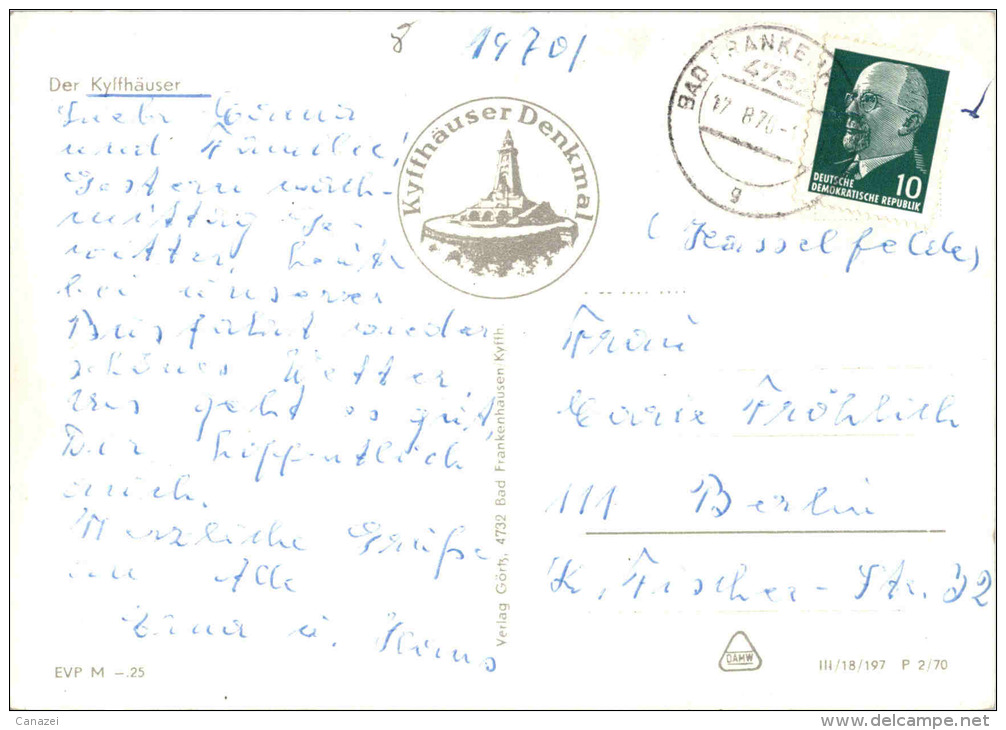 8 1970/
Der Kyffhäuser
und Familie!
Gestern nach-
mittag Ge-
witter, heute
bei unserer
Busfahrt wieder
schönes Wetter.
Uns geht es gut,
Dir hoffentlich
auch.
Herzliche Grüße
an Alle
Erna u. Hans
EVP M –.25
Kyffhäuser Denkmal
Verlag Görtz, 4732 Bad Frankenhausen Kyffh.
BAD FRANKENH
4732
17.8.70
g
DEUTSCHE
DEMOKRATISCHE REPUBLIK
10
(Hasselfelde)
Frau
Fröhlich
111 Berlin
K. Fischer-Str. 32
DAMW
III/18/197 P 2/70
Canazei
www.delcampe.net